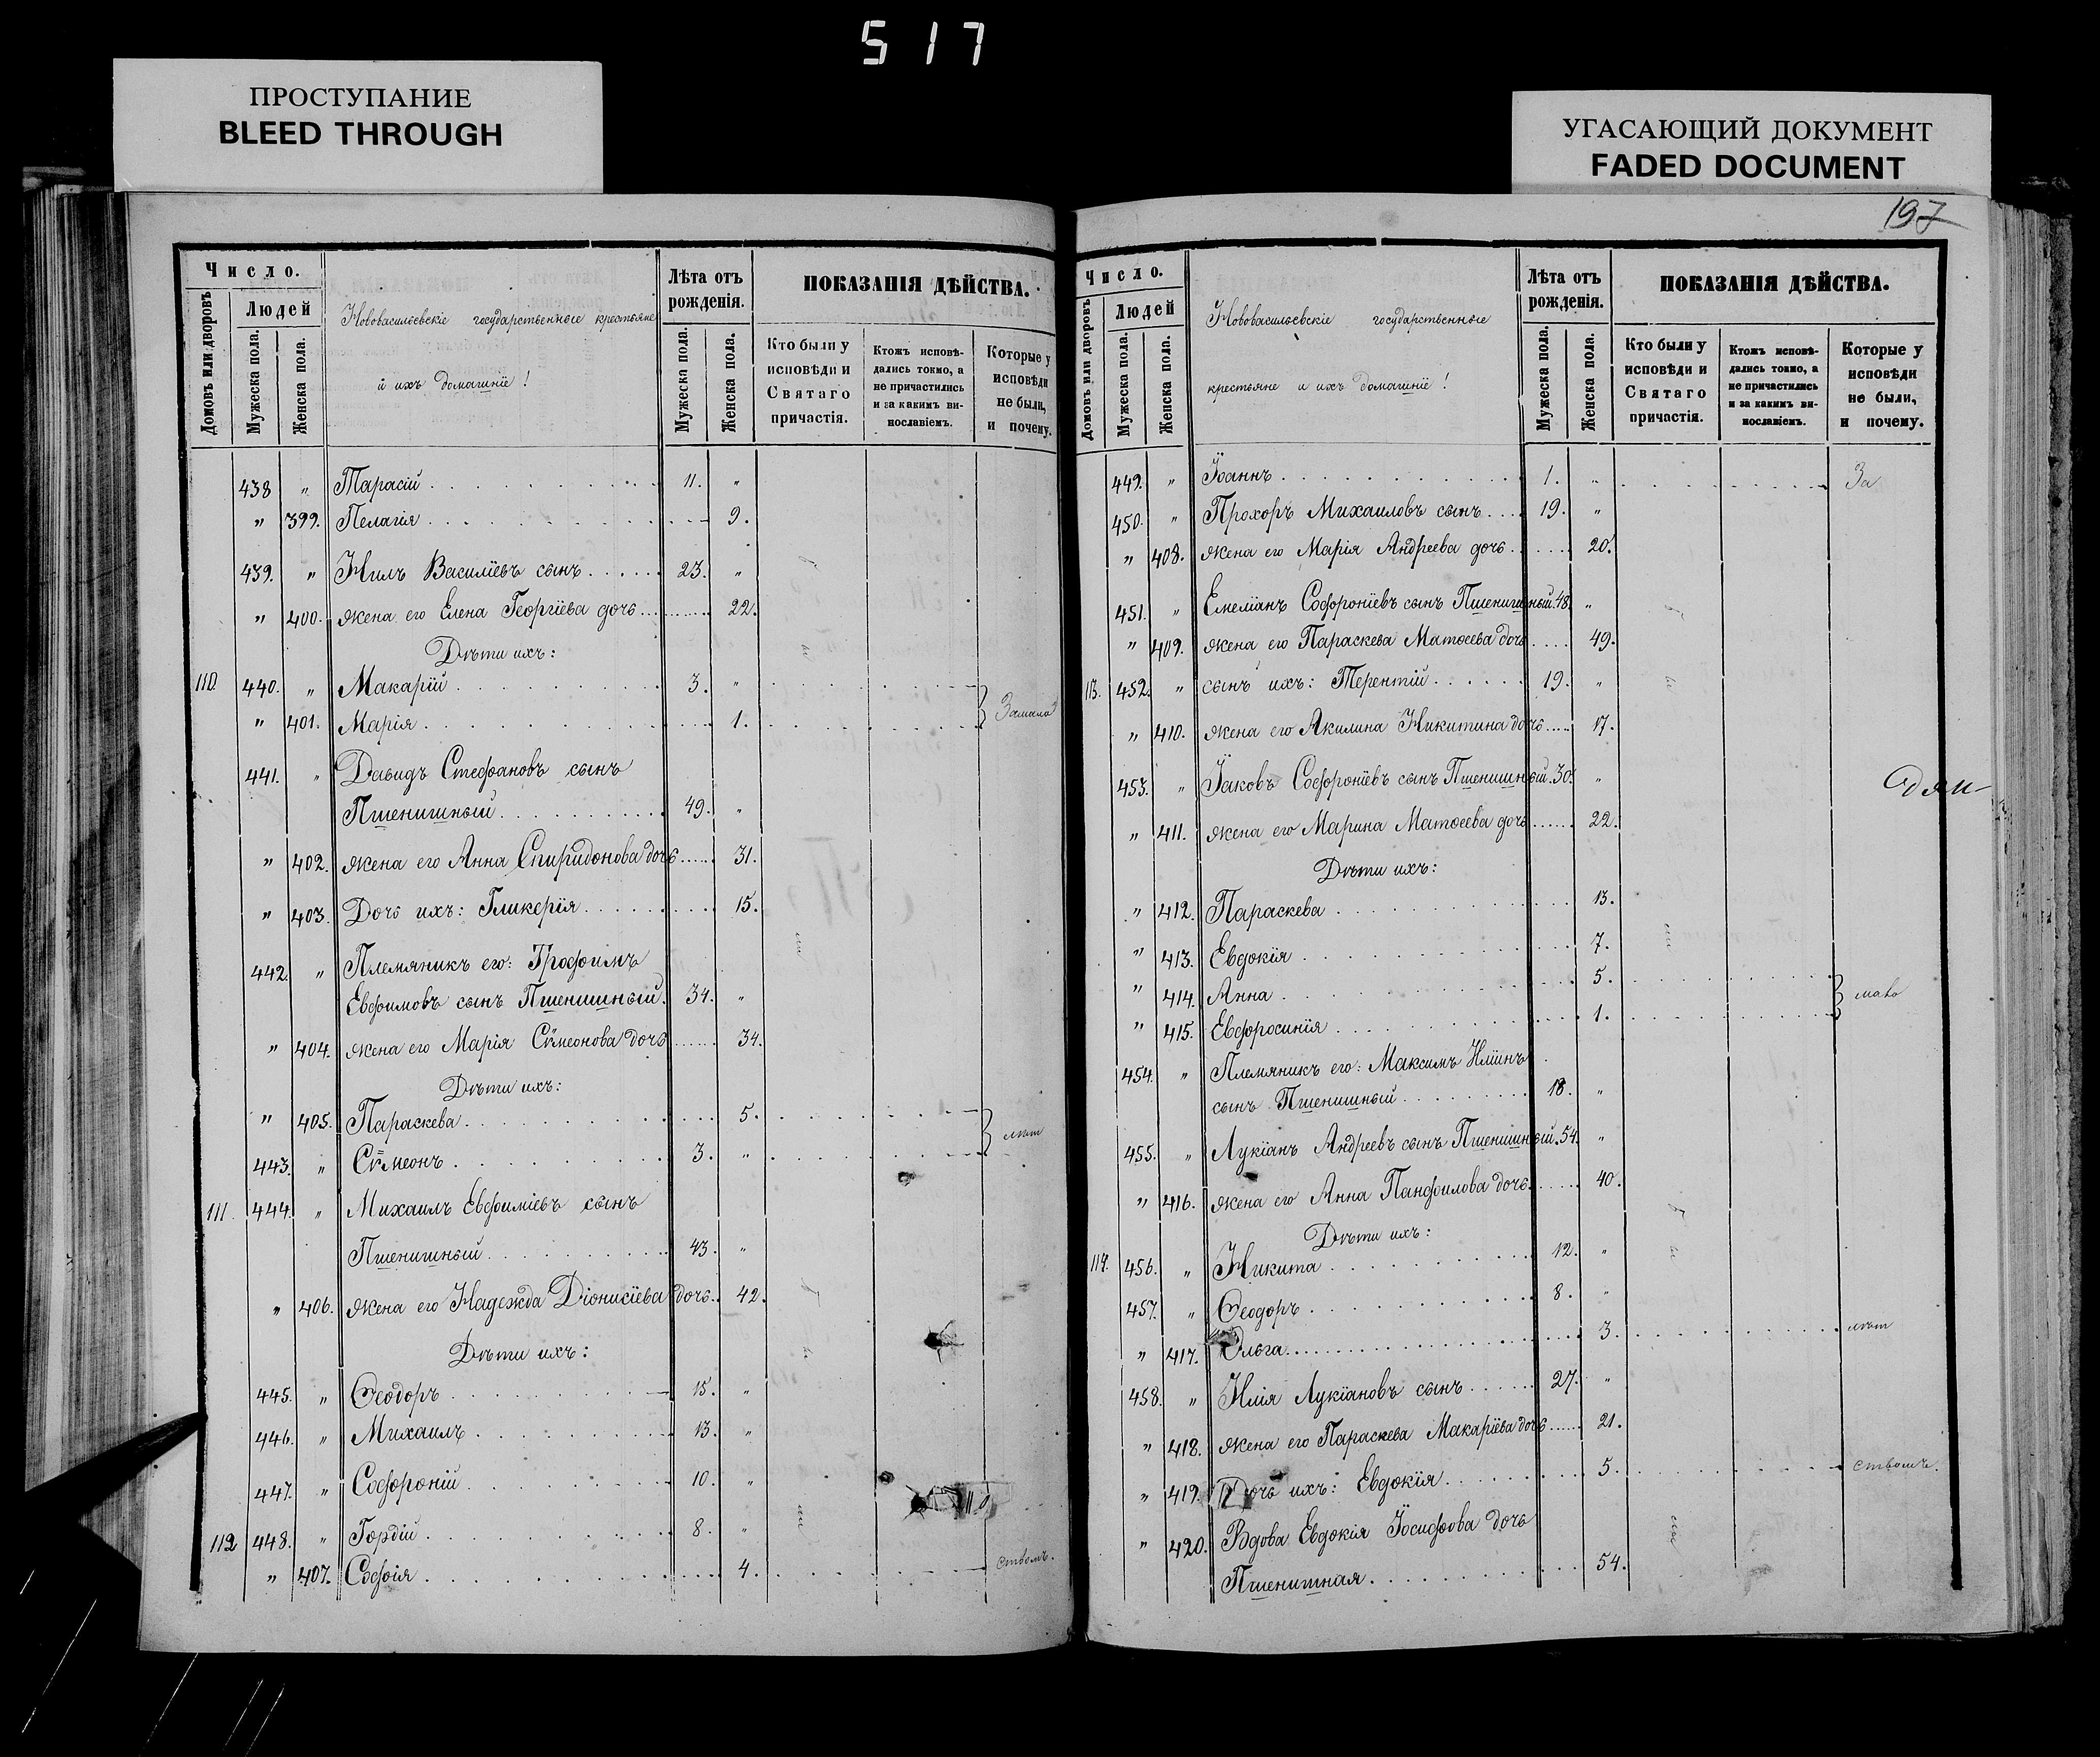 517
ПРОСТУПАНИЕ
BLEED THROUGH
УГАСАЮЩИЙ ДОКУМЕНТ
FADED DOCUMENT
Число.
Людей
Домовъ или дворовъ
Мужеска пола.
Женска пола.
Нововасильевскіе государственные крестьяне
и ихъ домашніе!
Лѣта отъ рожденія.
Мужеска пола.
Женска пола.
ПОКАЗАНІЯ ДѢЙСТВА.
Кто были у исповѣди и Святаго причастія.
Ктожъ исповѣдались токмо, а не причастились и за какимъ винославіемъ.
Которые у исповѣди не были, и почему.
438 " Тарасій 11. "
" 399. Пелагія 9.
439. " Нилъ Василіевъ сынъ 23. "
" 400. жена его Елена Георгіева дочь 22.
Дѣти ихъ:
110. 440. " Макарій 3. "
" 401. Марія 1. Замало
441. " Давидъ Стефановъ сынъ
Пшенишный 49. "
" 402. жена его Анна Спиридонова дочь 31.
" 403. Дочь ихъ: Гликерія 15.
442. " Племяникъ его: Трофимъ
Евфимовъ сынъ Пшенишный. 34. "
" 404. жена его Марія Сѵмеонова дочь 34.
Дѣти ихъ:
" 405. Параскева 5.
443. " Сѵмеонъ 3. " лѣт
111. 444. " Михаилъ Евфиміевъ сынъ
Пшенишный 43. "
" 406. жена его Надежда Діонисіева дочь. 42.
Дѣти ихъ:
445. " Ѳеодоръ 15. "
446. " Михаилъ 13. "
447. " Софроній 10. "
112 448. " Гордій 8. "
" 407. Софія 4. ствомъ.
197
Число.
Людей
Домовъ или дворовъ
Мужеска пола.
Женска пола.
Нововасильевскіе государственные
крестьяне и ихъ домашніе!
Лѣта отъ рожденія.
Мужеска пола.
Женска пола.
ПОКАЗАНІЯ ДѢЙСТВА.
Кто были у исповѣди и Святаго причастія.
Ктожъ исповѣдались токмо, а не причастились и за какимъ винославіемъ.
Которые у исповѣди не были, и почему.
449. " Іоаннъ 1. " За
450. " Прохоръ Михаиловъ сынъ 19. "
" 408. жена его Марія Андреева дочь 20.
451. " Емеліанъ Софроніевъ сынъ Пшенишный. 48. "
" 409. жена его Параскева Матѳеева дочь 49.
113. 452. " сынъ ихъ: Терентій 19. "
" 410. жена его Акилина Никитина дочь 17.
453. " Іаковъ Софроніевъ сынъ Пшенишный. 30. "
" 411. жена его Марина Матѳеева дочь 22.
Дѣти ихъ:
" 412. Параскева 13.
" 413. Евдокія 7.
" 414. Анна 5.
" 415. Евфросинія 1. мало
454. " Племяникъ его: Максимъ Иліинъ
сынъ Пшенишный 18. "
455. " Лукіанъ Андреевъ сынъ Пшенишный. 54. "
" 416. жена его Анна Панфилова дочь. 40.
Дѣти ихъ:
114. 456. " Никита 12. "
457. " Ѳеодоръ 8. "
" 417. Ольга 3. лѣт
458. " Илія Лукіановъ сынъ 27. "
" 418. жена его Параскева Макаріева дочь 21.
" 419. Дочь ихъ: Евдокія 5. ствомъ.
" 420. Вдова Евдокія Іосифова дочь
Пшенишная 54.